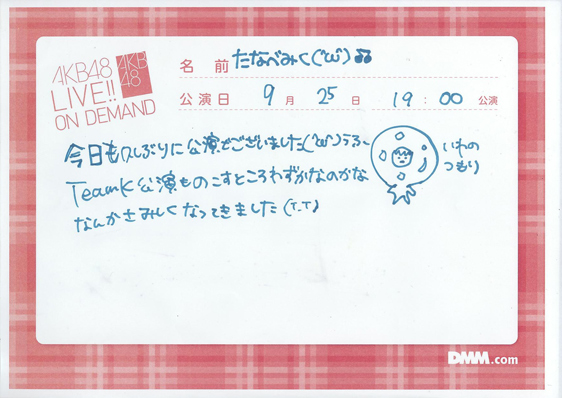 AKB48
LIVE!!
ON DEMAND
AKB
48
名 前 たなべみく('ω')♫♫
公演日 9月 25日 19:00 公演
今日も久しぶりに公演でございました('ω')うふ~
TeamK公演ものこすところわずかなのかな
なんかさみしくなってきました(T_T)
いわの
つもり
DMM.com